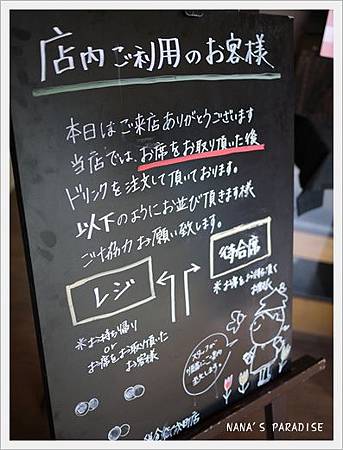 店内ご利用のお客様
本日はご来店ありがとうございます
当店では、お席をお取り頂いた後
ドリンクを注文して頂いております。
以下のようにお並び頂きます様
ご協力お願い致します。
レジ
待合席
※お持ち帰り
or
お席をお取り頂いた
お客様
※お席をお待ち頂く
お客様
スタッフが
NANA'S PARADISE